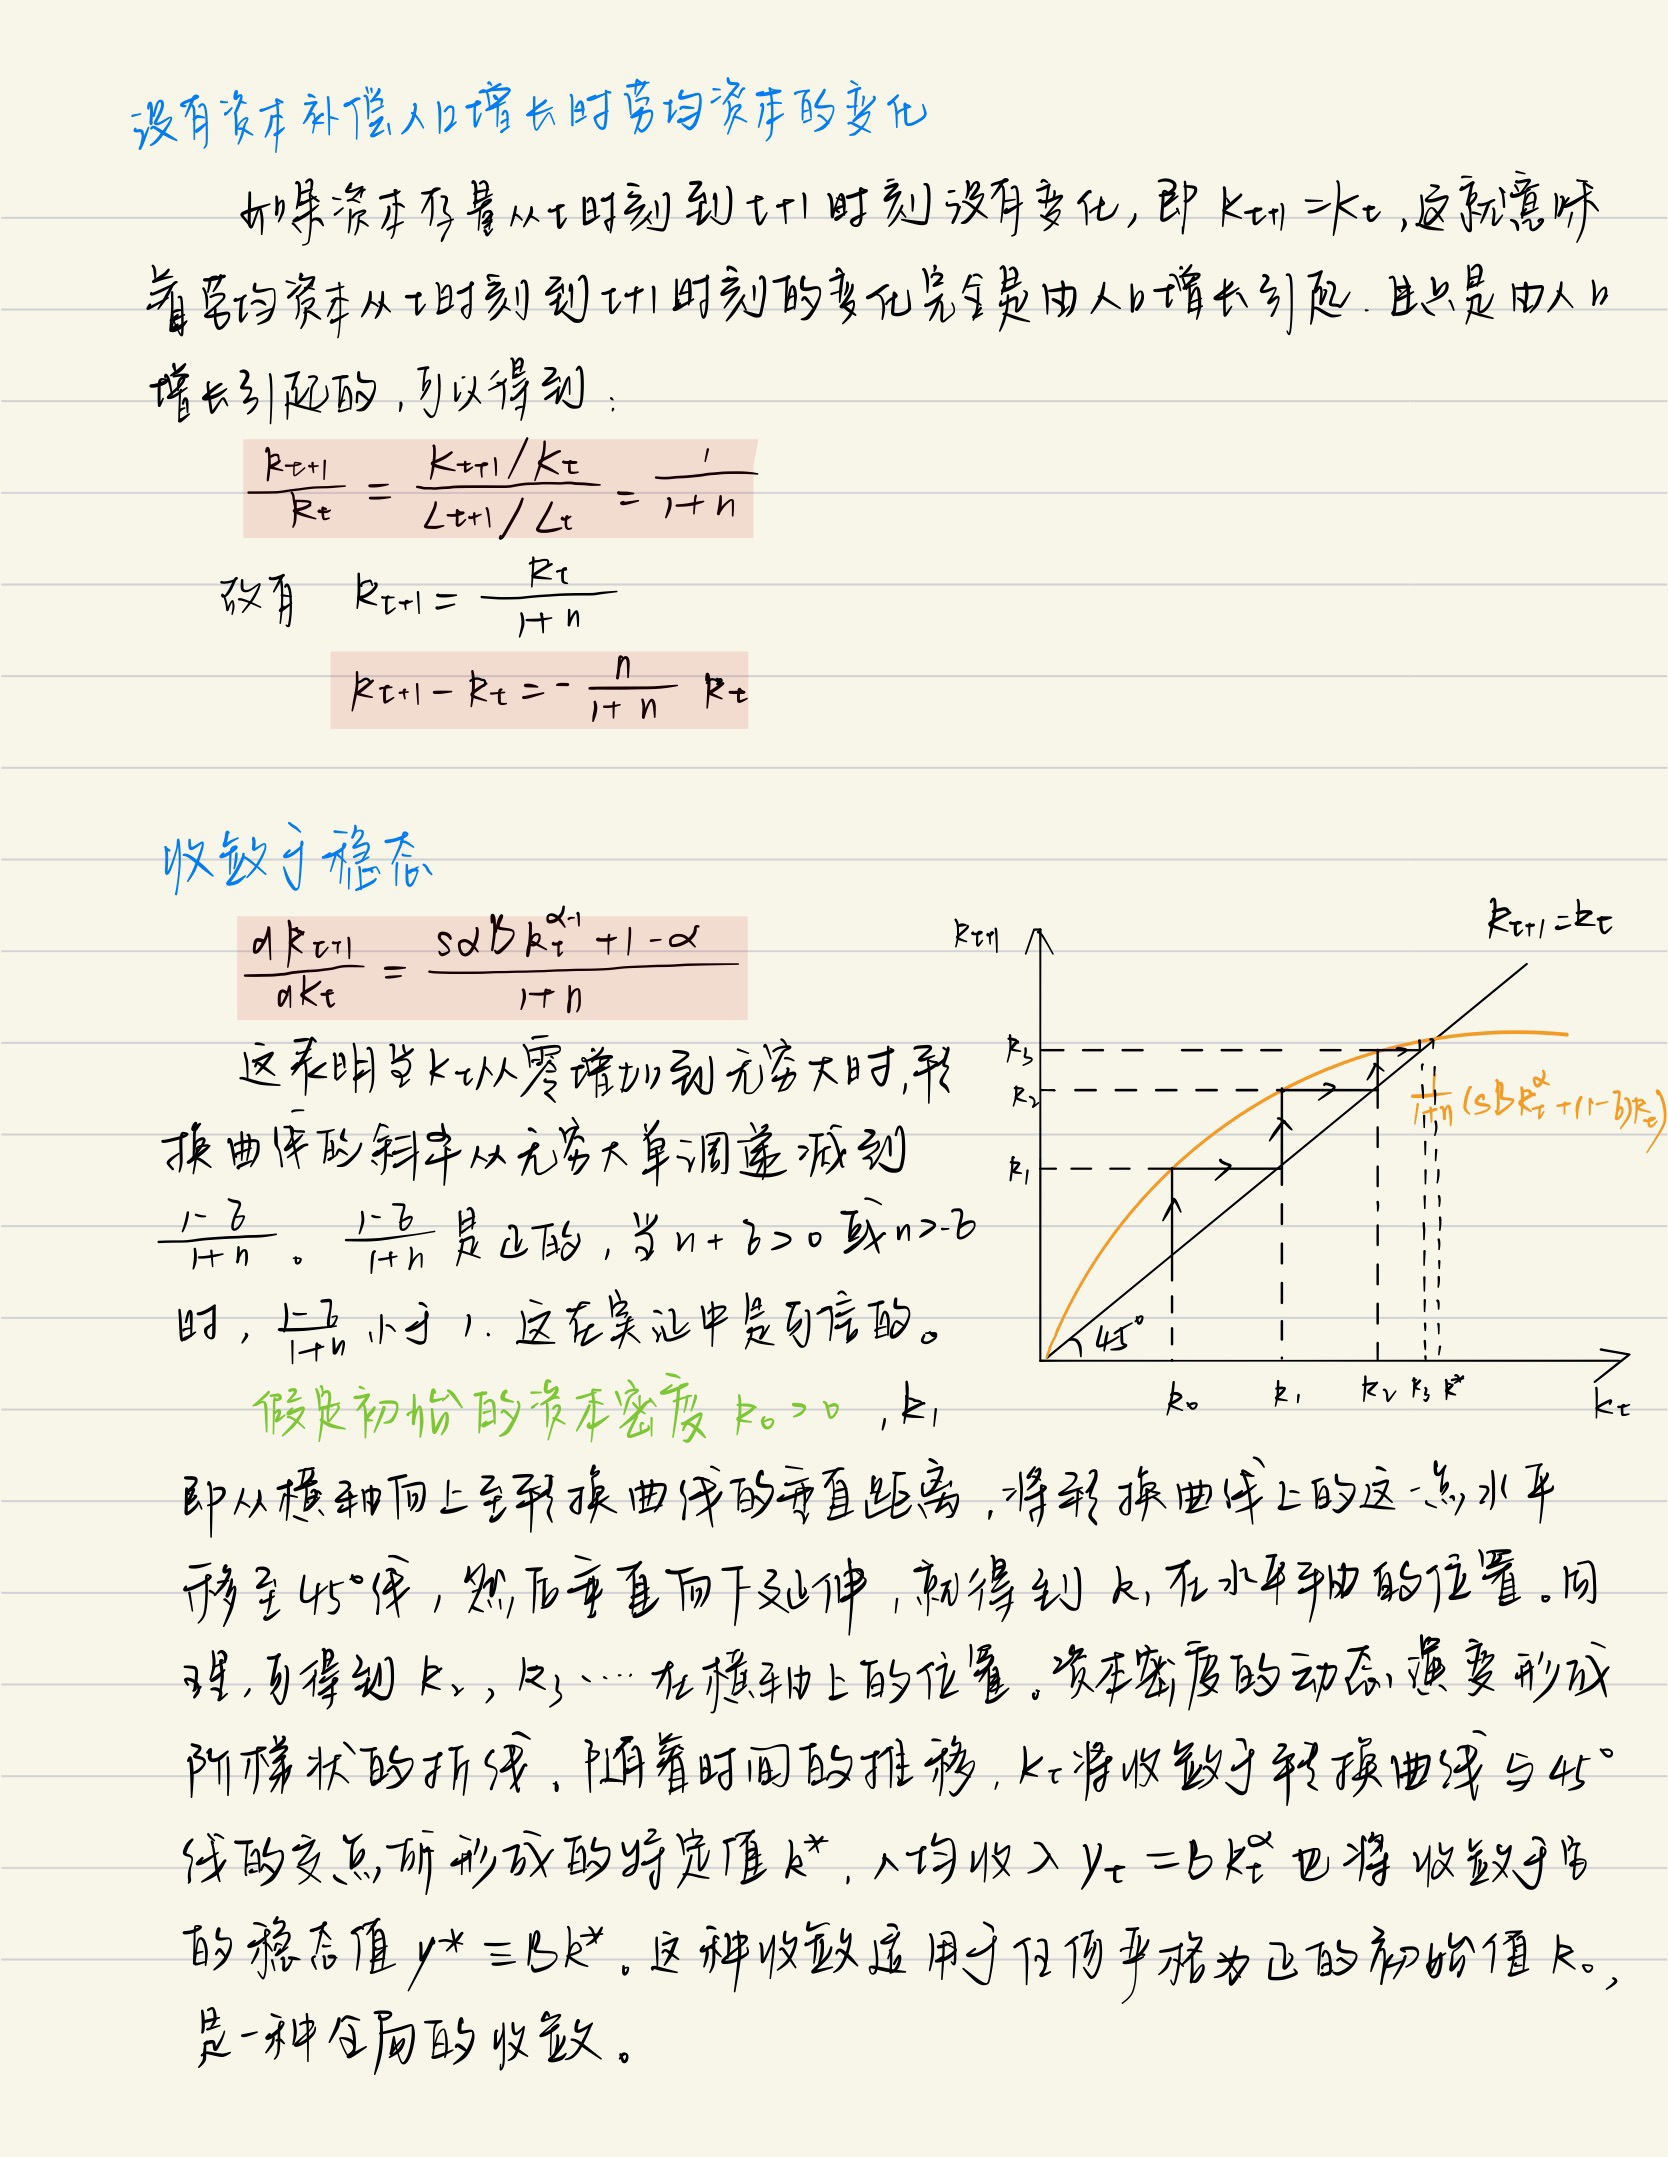 没有资本补偿人口增长时劳均资本的变化
如果资本存量从t时刻到t+1时刻没有变化, 即 Kt+1 = Kt, 这就意味
着劳均资本从t时刻到t+1时刻的变化完全是由人口增长引起. 且只是由人口
增长引起的, 可以得到:
kt+1/kt = (Kt+1/Kt)/(Lt+1/Lt) = 1/(1+n)
故有 kt+1 = kt/(1+n)
kt+1 - kt = - n/(1+n) kt
收敛于稳态
dkt+1/dkt = (sαBkt^(α-1) + 1 - α)/(1+n)
这表明当kt从零增加到无穷大时, 转
换曲线的斜率从无穷大单调递减到
(1-δ)/(1+n)。(1-δ)/(1+n) 是正的, 当 n+δ>0 或 n>-δ
时, (1-δ)/(1+n) 小于 1. 这在实证中是可信的。
假定初始的资本密度 k0>0, k1
kt+1
kt+1=kt
k3
k2
k1
1/(1+n) (sBkt^α + (1-δ)kt)
45°
k0 k1 k2 k3 k*
kt
即从横轴向上至转换曲线的垂直距离, 将转换曲线上的这一点水平
移至45°线, 然后垂直向下延伸, 就得到 k1 在水平轴的位置。同
理, 可得到 k2, k3 … 在横轴上的位置。资本密度的动态演变形成
阶梯状的折线. 随着时间的推移, kt将收敛于转换曲线与45°
线的交点所形成的特定值 k*. 人均收入 yt = Bkt^α 也将收敛于它
的稳态值 y* ≡ Bk*。这种收敛适用于任何严格为正的初始值 k0,
是一种全局的收敛。